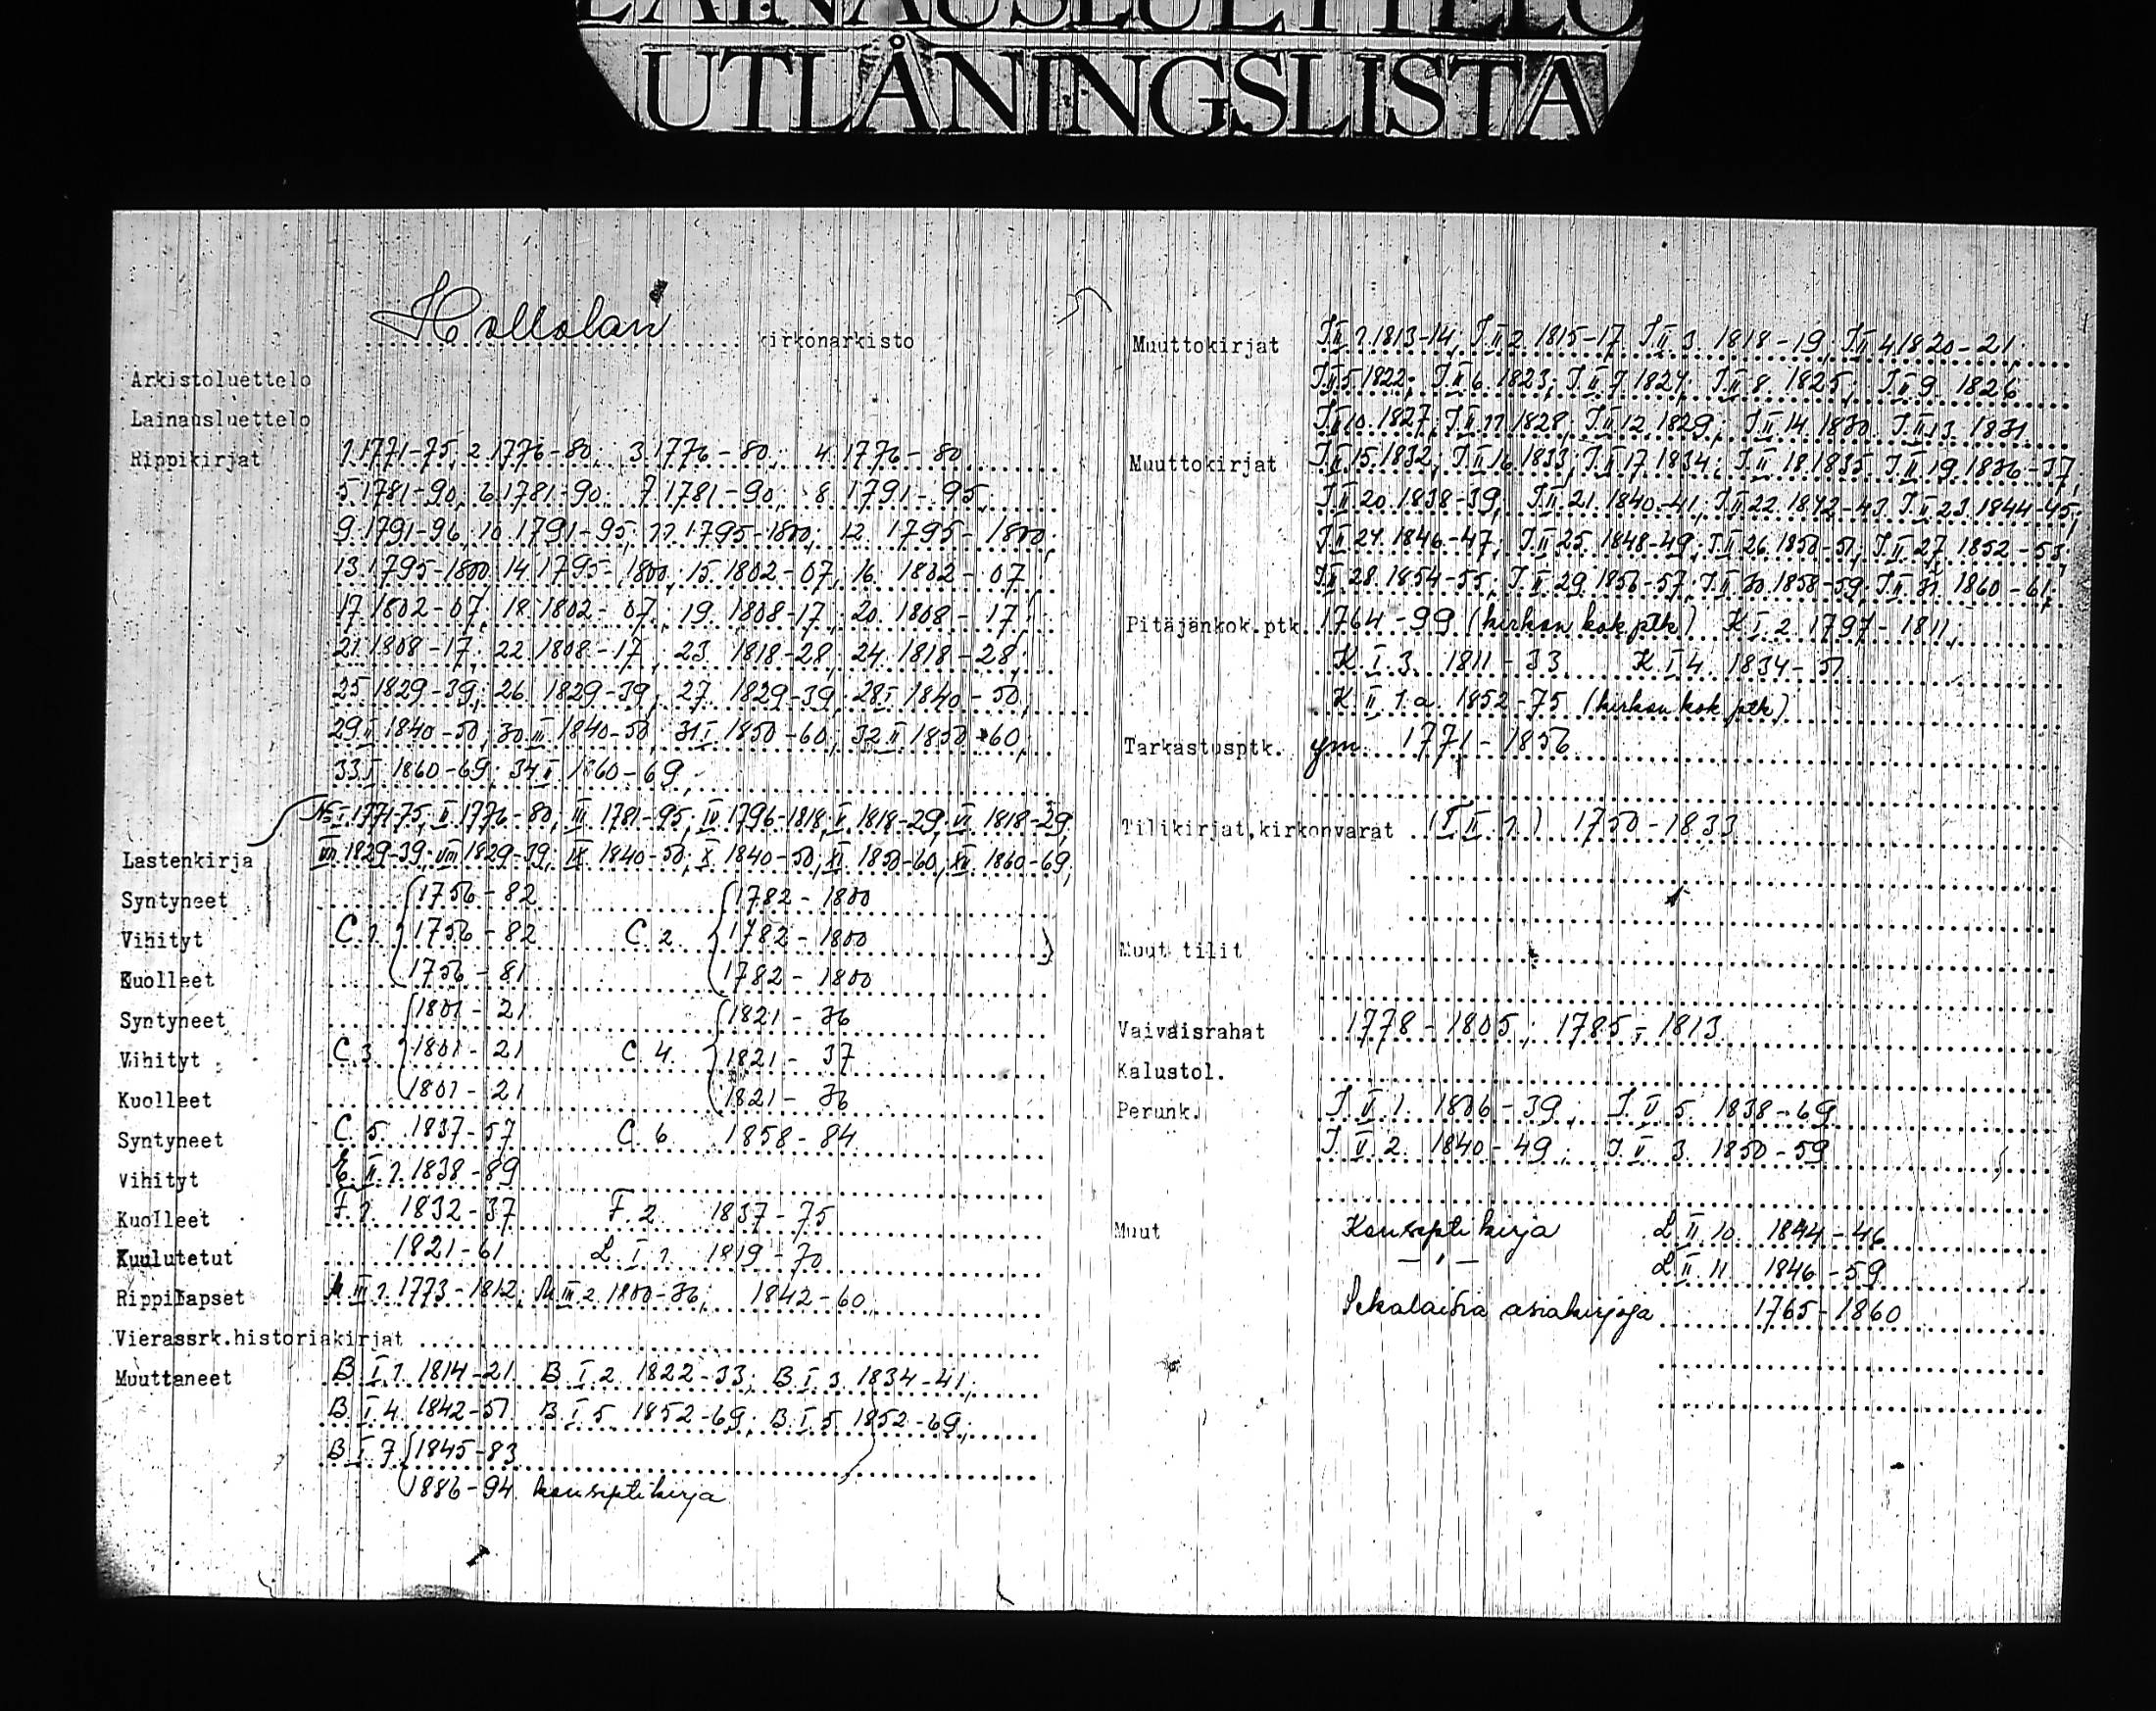 LAINAUSLUETTELO
UTLÅNINGSLISTA
Hollolan kirkonarkisto
Arkistoluettelo
Lainausluettelo
Rippikirjat 1. 1771-75, 2. 1776-80; 3. 1776-80; 4. 1776-80
5. 1781-90, 6. 1781-90; 7. 1781-90; 8. 1791-95,
9. 1791-96, 10. 1791-95; 11. 1795-1800; 12. 1795-1800;
13. 1795-1800; 14. 1795-1800; 15. 1802-07, 16. 1802-07;
17. 1802-07, 18. 1802-07; 19. 1808-17; 20. 1808-17;
21. 1808-17; 22. 1808-17; 23. 1818-28; 24. 1818-28;
25. 1829-39; 26. 1829-39; 27. 1829-39; 28 I. 1840-50;
29 II. 1840-50; 30 III. 1840-50; 31 I. 1850-60; 32 II. 1850-60;
33 I. 1860-69; 34 II. 1860-69;
No I. 1771-75; II. 1776-80; III. 1781-95; IV. 1796-1818, V. 1818-29, VI. 1818-29,
Lastenkirja VII. 1829-39; VIII. 1829-39; IX. 1840-50; X. 1840-50; XI. 1850-60; XII. 1860-69;
Syntyneet 1756-82 1782-1800
Vihityt C. 1. 1756-82 C. 2. 1782-1800
Kuolleet 1756-81 1782-1800
Syntyneet 1801-21 1821-36
Vihityt C. 3. 1801-21 C. 4. 1821-37
Kuolleet 1801-21 1821-36
Syntyneet C. 5. 1837-57 C. 6. 1858-84
Vihityt E. II. 1. 1838-89
Kuolleet F. 1. 1832-37 F. 2. 1837-75
Kuulutetut 1821-61 L. I. 1. 1819-70
Rippilapset M III 1. 1773-1812; M III 2. 1800-36; 1842-60
Vierassrk.historiakirjat
Muuttaneet B. I. 1. 1814-21 B. I. 2. 1822-33; B. I. 3. 1834-41;
B. I. 4. 1842-51 B. I. 5. 1852-69; B. I. 5. 1852-69;
B. I. 7. 1845-83
1886-94 konseptikirja
Muuttokirjat I II 1. 1813-14; I II 2. 1815-17 I II 3. 1818-19, I II 4. 1820-21;
I II 5. 1822; I II 6. 1823; I II 7. 1824; I II 8. 1825; I II 9. 1826
I II 10. 1827; I II 11. 1828; I II 12. 1829; I II 14. 1830. I II 13. 1831
Muuttokirjat I II 15. 1832; I II 16. 1833; I II 17. 1834; I II 18. 1835. I II 19. 1836-37,
I II 20. 1838-39; I II 21. 1840-41, I II 22. 1842-43 I II 23. 1844-45;
I II 24. 1846-47; I II 25. 1848-49; I II 26. 1850-51; I II 27. 1852-53;
I II 28. 1854-55; I II 29. 1856-57; I II 30. 1858-59; I II 31. 1860-61;
Pitäjänkok.ptk. 1764-99 (kirkon kok ptk) K I. 2. 1797-1811;
K. I. 3. 1811-33 K. I 4. 1834-51
K. II. 1. a. 1852-75 (kirkon kok. ptk)
Tarkastusptk. ym. 1771-1856
Tilikirjat,kirkonvarat (T II. 1.) 1750-1833
Muut tilit
Vaivaisrahat 1778-1805; 1785-1813
Kalustol.
Perunk. I. V. 1. 1806-39; I. V. 5. 1838-69
I. V. 2. 1840-49; I. V. 3. 1850-59
Muut Konseptikirja L II. 10. 1844-46
— " — L II. 11 1846-59
Sekalaisia asiakirjoja 1765-1860